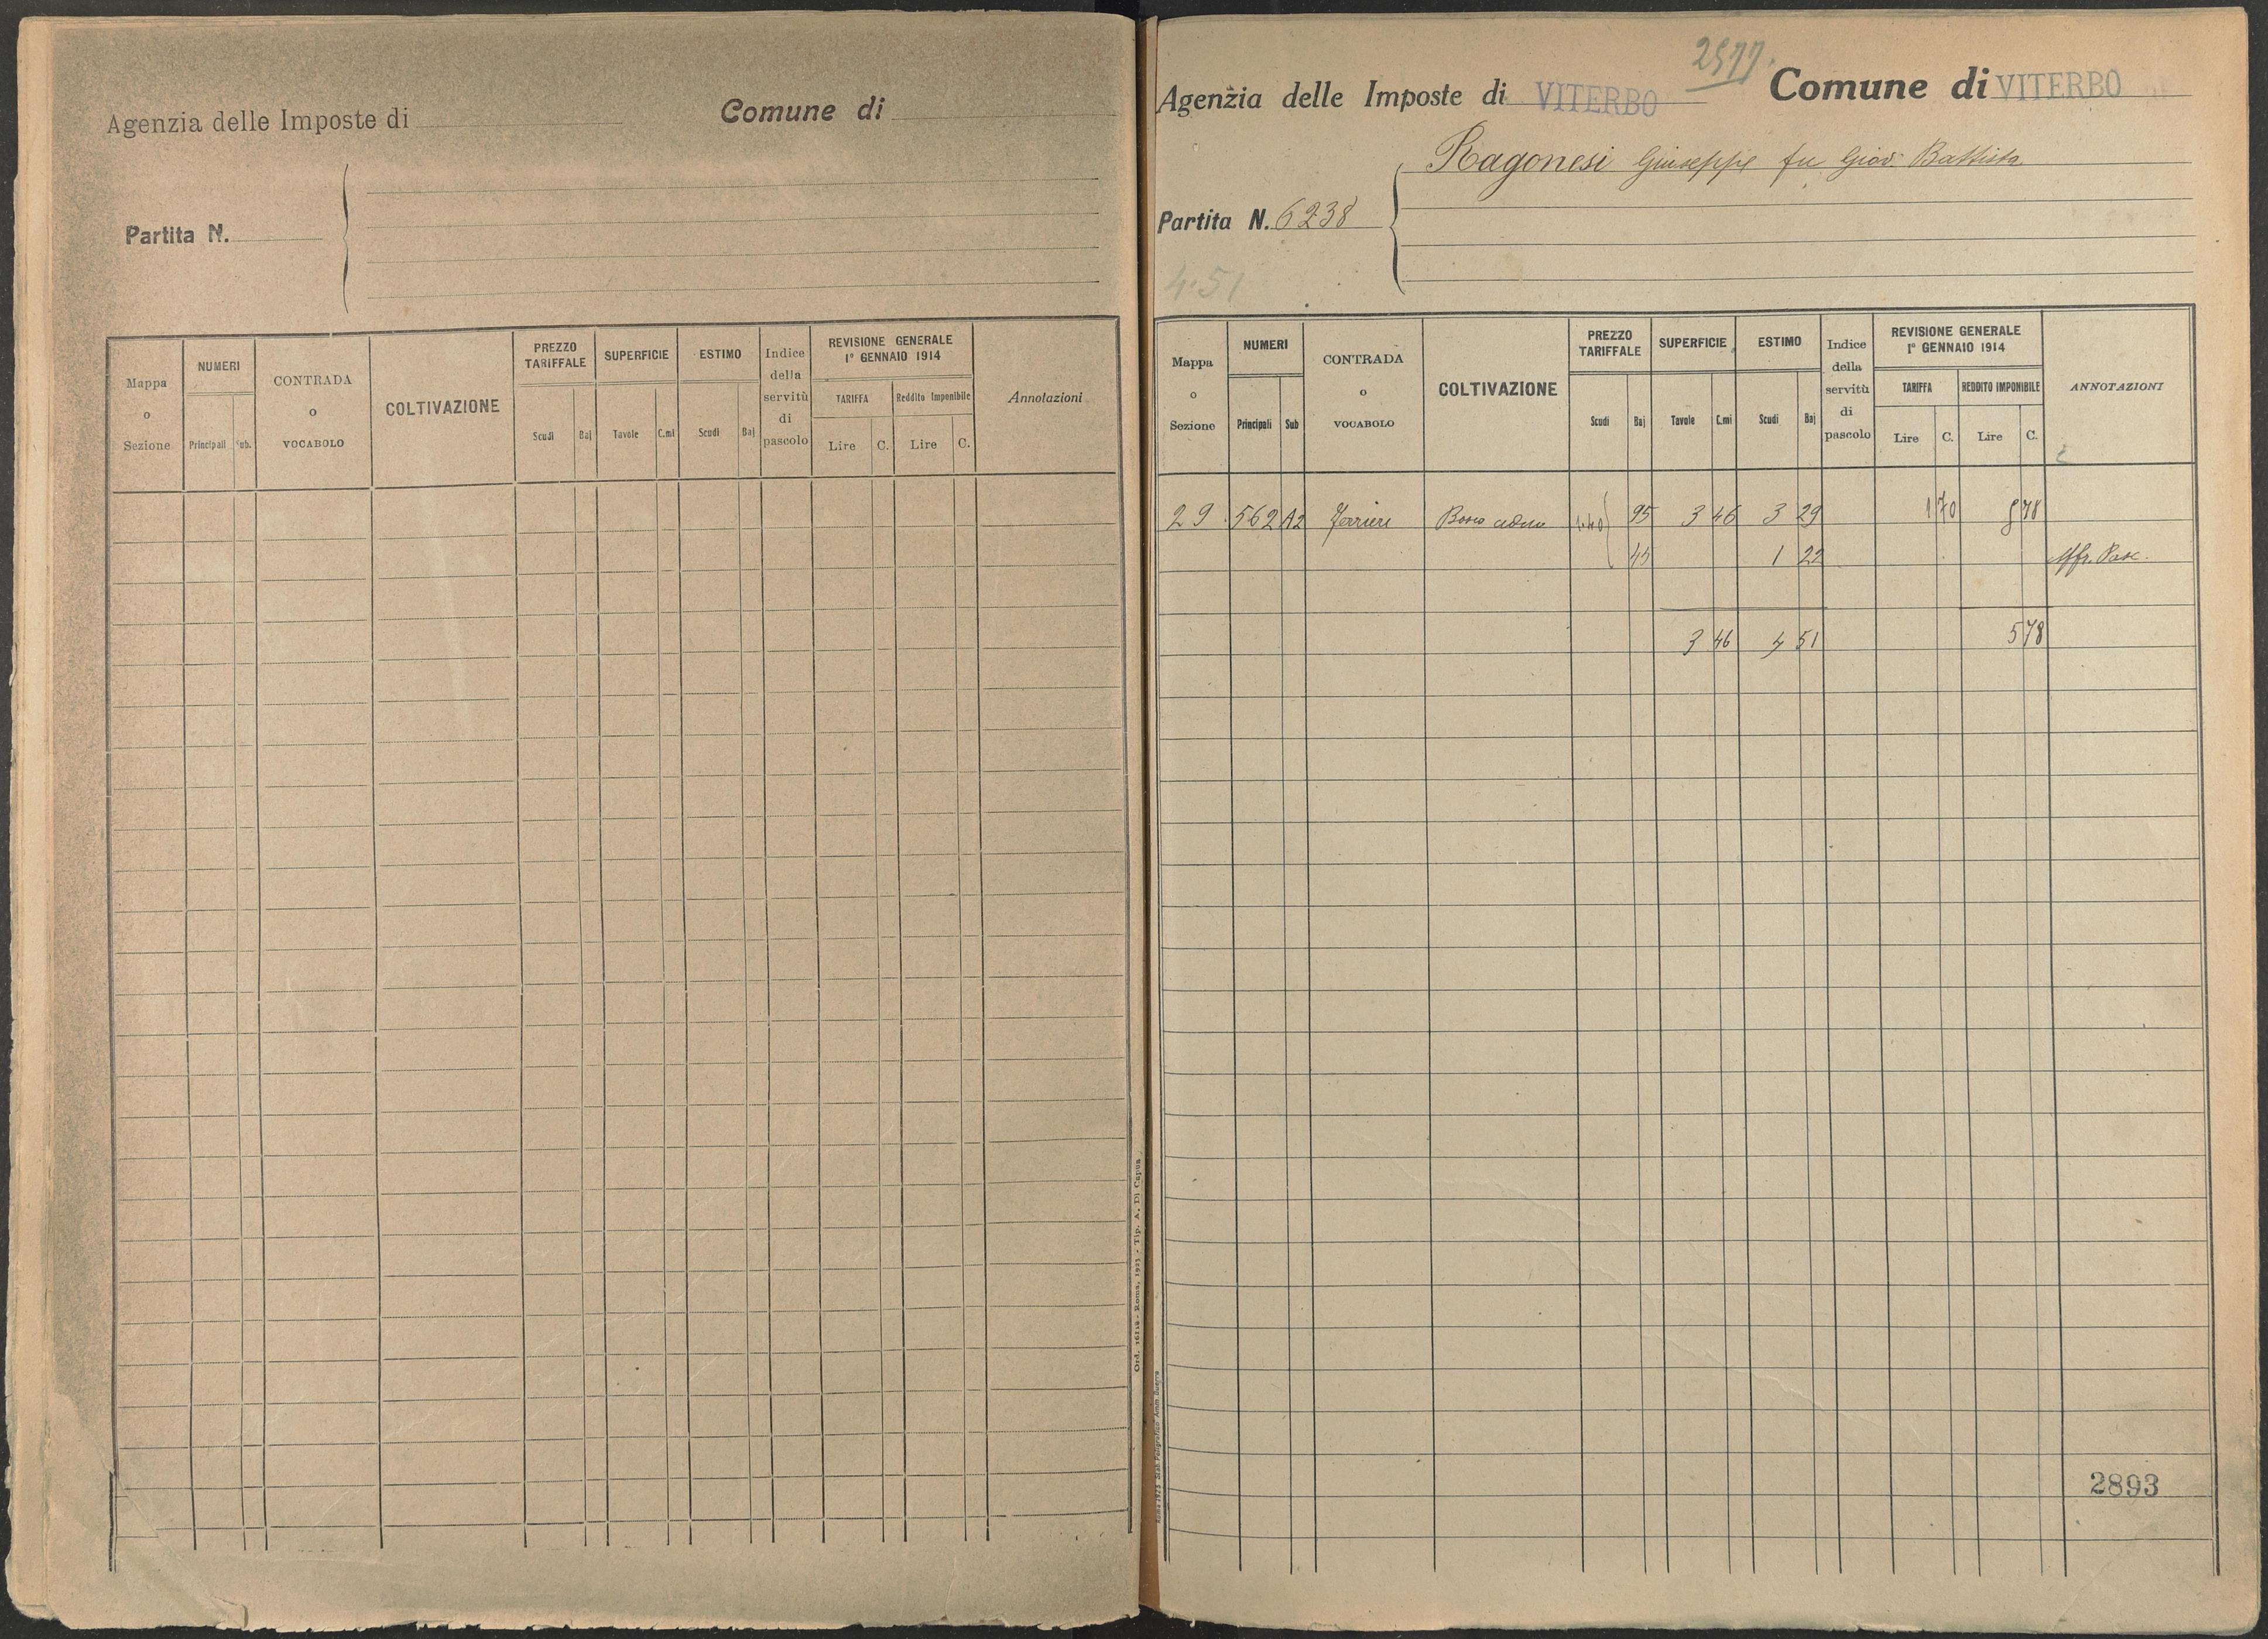 Agenzia delle Imposte di
Comune di
Partita N.
Mappa o Sezione
NUMERI
Principali
Sub.
CONTRADA o VOCABOLO
COLTIVAZIONE
PREZZO TARIFFALE
Scudi
Baj
SUPERFICIE
Tavole
C.mi
ESTIMO
Scudi
Baj
Indice della servitù di pascolo
REVISIONE GENERALE
1º GENNAIO 1914
TARIFFA
Lire
C.
Reddito Imponibile
Lire
C.
Annotazioni
Ord. 16318 - Roma, 1923 - Tip. A. Di Capua
2577.
Agenzia delle Imposte di VITERBO
Comune di VITERBO
Ragonesi Giuseppe fu Giov. Battista
Partita N. 6238
4.51
Mappa o Sezione
NUMERI
Principali
Sub
CONTRADA o VOCABOLO
COLTIVAZIONE
PREZZO TARIFFALE
Scudi
Baj
SUPERFICIE
Tavole
C.mi
ESTIMO
Scudi
Baj
Indice della servitù di pascolo
REVISIONE GENERALE
1º GENNAIO 1914
TARIFFA
Lire
C.
REDDITO IMPONIBILE
Lire
C.
ANNOTAZIONI
29 562 A2 Ferriere Bosco ceduo 1.40 95 3 46 3 29 1 70 5 78
45 1 22 Affr. Pasc.
3 46 4 51 5 78
2893